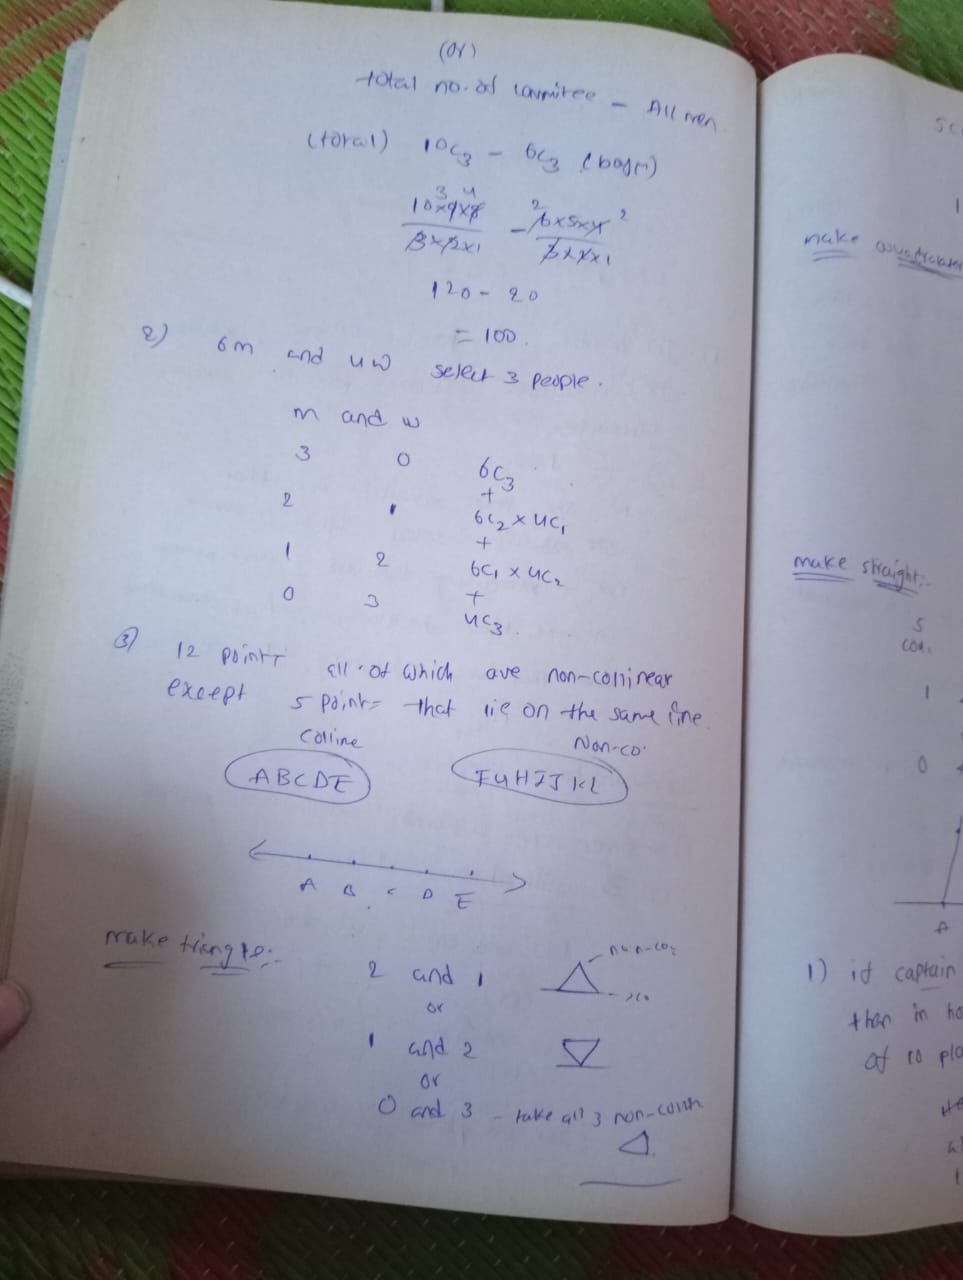 (or)
total no. of commitee - All men
(total) 10C3 - 6C3 (boys)
3 4
10x9x8 - 2 6x5x4 2
3x2x1 3x2x1
120 - 20
= 100.
2) 6m and 4w select 3 people.
m and w
3 0 6C3
+
2 1 6C2 x 4C1
+
1 2 6C1 x 4C2
+
0 3 4C3.
3) 12 points all of which are non-collinear
except 5 points that lie on the same line.
Colline Non-co
ABCDE FGHIJKL
A B C D E
make triangle:-
2 and 1 non-co
or
1 and 2
or
0 and 3 - take all 3 non-colin
make
make straight:-
5
con.
1
0
A
1) if captain
then in
of 10